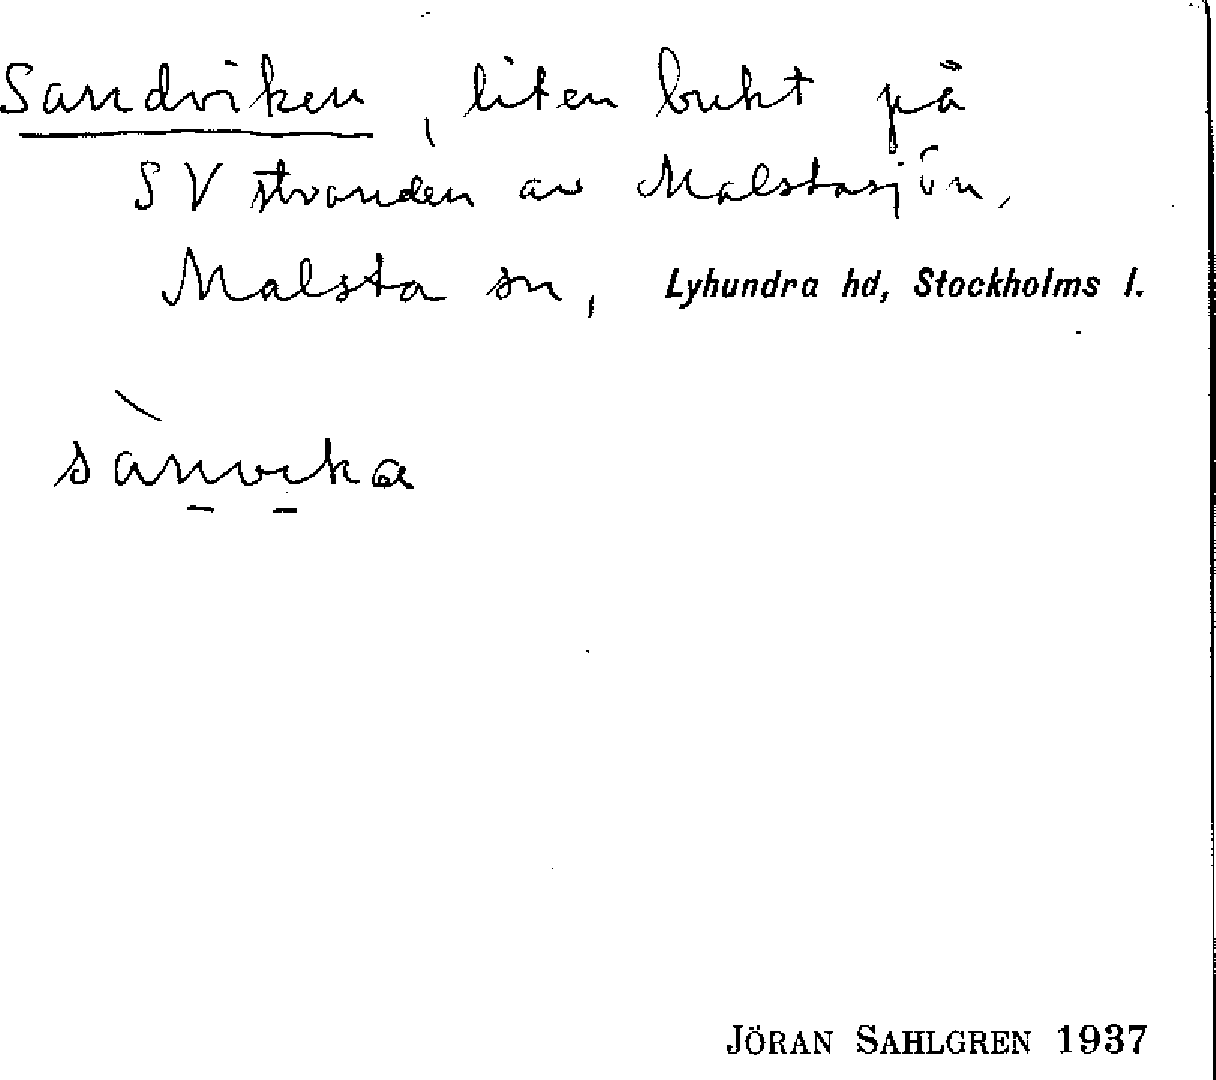 Sandviken, liten bukt på
SV stranden av Malstasjön,
Malsta sn, Lyhundra hd, Stockholms l.
sànvika
JÖRAN SAHLGREN 1937